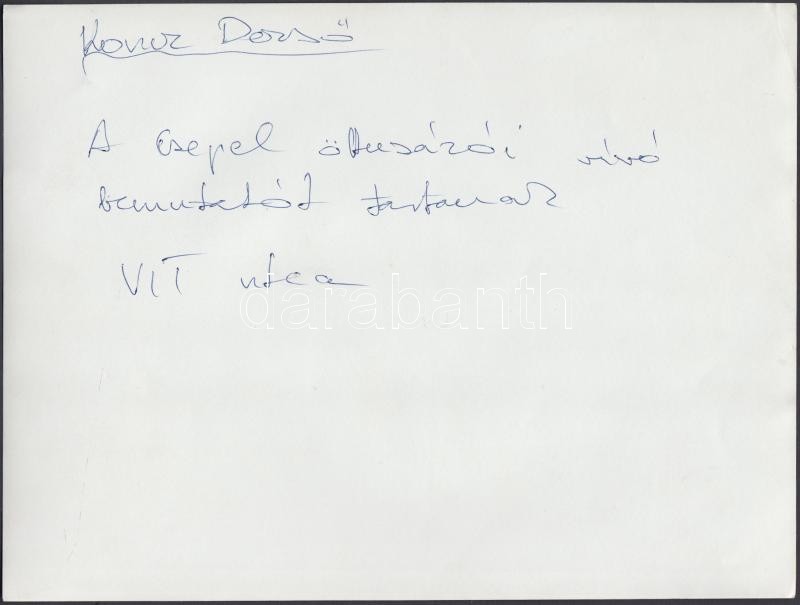 Koncz Dezső
A Csepel öttusázói vívó
bemutatót tartanak
VIT utca
darabanth